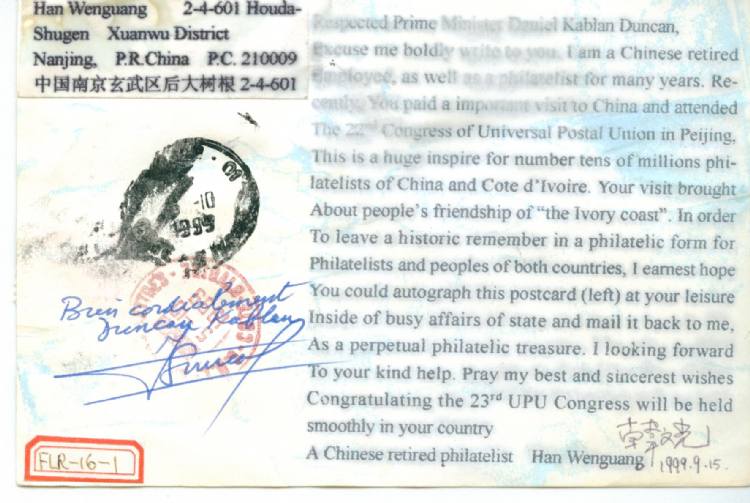 Han Wenguang 2-4-601 Houda-
Shugen Xuanwu District
Nanjing, P.R.China P.C. 210009
中国南京玄武区后大树根 2-4-601
Respected Prime Minister Daniel Kablan Duncan,
Excuse me boldly write to you. I am a Chinese retired
employee, as well as a philatelist for many years. Re-
cently, You paid a important visit to China and attended
The 22nd Congress of Universal Postal Union in Peijing,
This is a huge inspire for number tens of millions phi-
latelists of China and Cote d'Ivoire. Your visit brought
About people's friendship of "the Ivory coast". In order
To leave a historic remember in a philatelic form for
Philatelists and peoples of both countries, I earnest hope
You could autograph this postcard (left) at your leisure
Inside of busy affairs of state and mail it back to me,
As a perpetual philatelic treasure. I looking forward
To your kind help. Pray my best and sincerest wishes
Congratulating the 23rd UPU Congress will be held
smoothly in your country
A Chinese retired philatelist Han Wenguang
1999.9.15.
10
1999
Bien cordialement
Duncan Kablan
Duncan
FLR-16-1